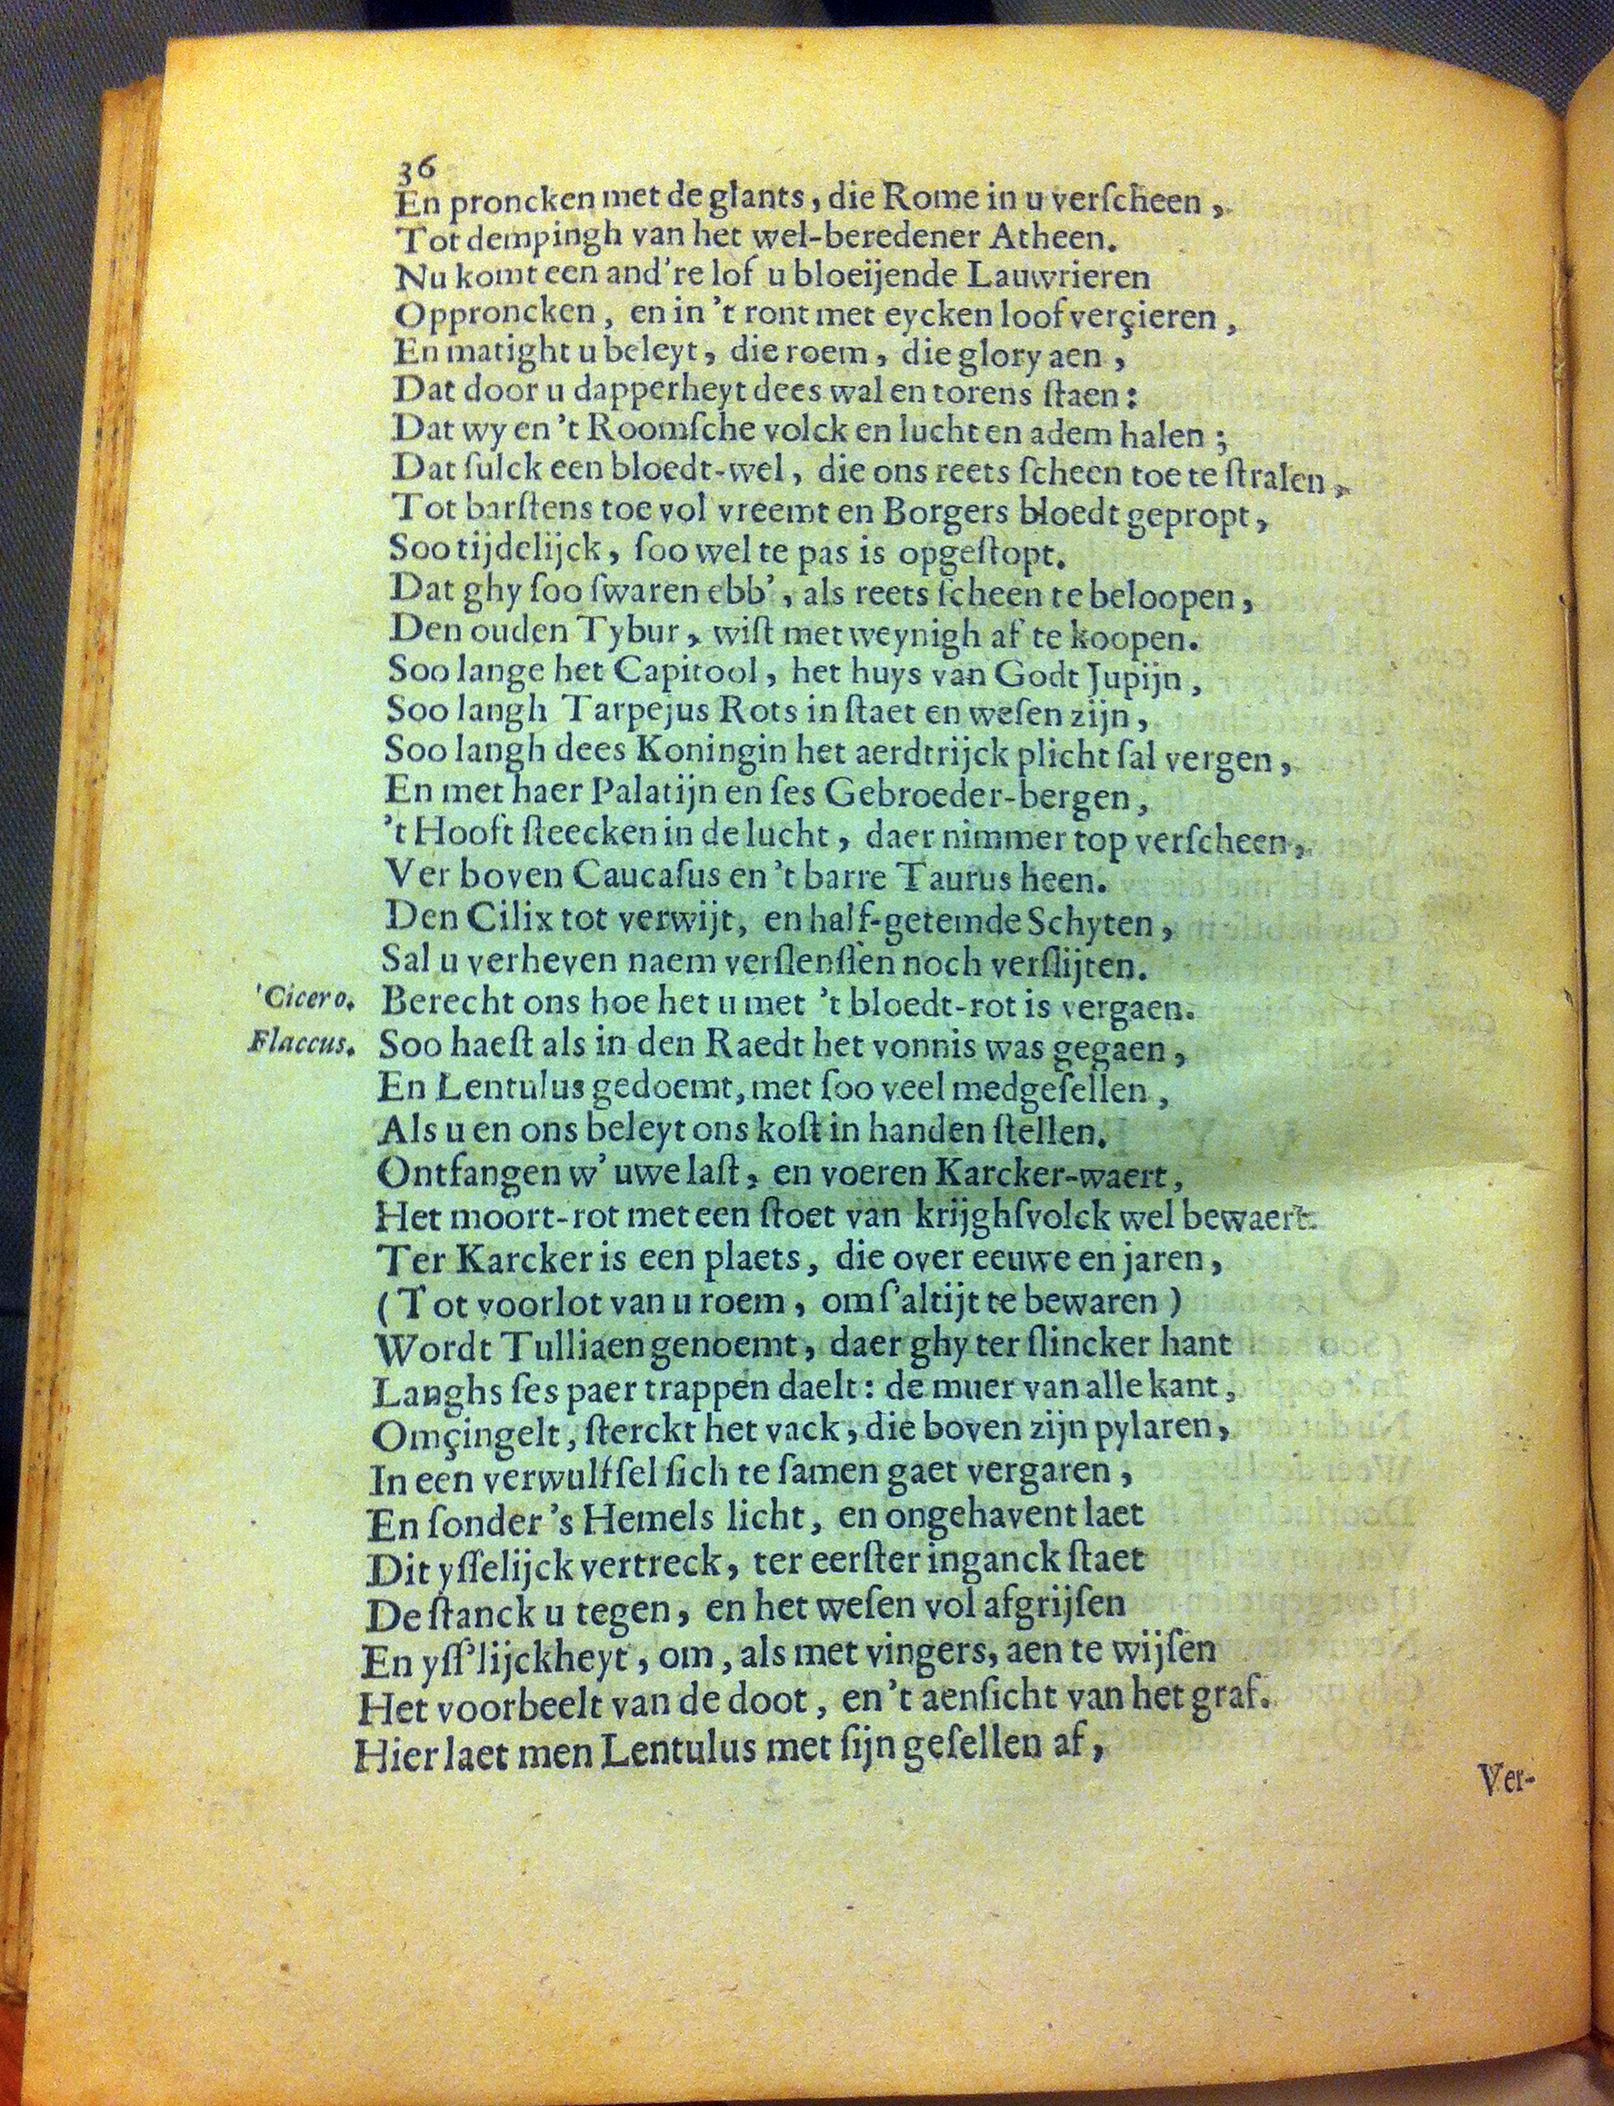 36
En proncken met de glants, die Rome in u verſcheen,
Tot dempingh van het wel-beredener Atheen.
Nu komt een and're lof u bloeijende Lauwrieren
Oppproncken, en in 't ront met eycken loof verçieren,
En matight u beleyt, die roem, die glory aen,
Dat door u dapperheyt dees wal en torens ſtaen:
Dat wy en 't Roomſche volck en lucht en adem halen;
Dat ſulck een bloedt-wel, die ons reets ſcheen toe te ſtralen,
Tot barſtens toe vol vreemt en Borgers bloedt gepropt,
Soo tijdelijck, ſoo wel te pas is opgeſtopt.
Dat ghy ſoo ſwaren ebb', als reets ſcheen te beloopen,
Den ouden Tybur, wiſt met weynigh af te koopen.
Soo lange het Capitool, het huys van Godt Jupijn,
Soo langh Tarpejus Rots in ſtaet en weſen zijn,
Soo langh dees Koningin het aerdtrijck plicht ſal vergen,
En met haer Palatijn en ſes Gebroeder-bergen,
't Hooft ſteecken in de lucht, daer nimmer top verſcheen,
Ver boven Caucaſus en 't barre Taurus heen.
Den Cilix tot verwijt, en half-getemde Schyten,
Sal u verheven naem verſlenſſen noch verſlijten.
'Cicero. Berecht ons hoe het u met 't bloedt-rot is vergaen.
Flaccus. Soo haeſt als in den Raedt het vonnis was gegaen,
En Lentulus gedoemt, met ſoo veel medgeſellen,
Als u en ons beleyt ons koſt in handen ſtellen.
Ontfangen w' uwe laſt, en voeren Karcker-waert,
Het moort-rot met een ſtoet van krijghſvolck wel bewaert.
Ter Karcker is een plaets, die over eeuwe en jaren,
(Tot voorlot van u roem, om ſ'altijt te bewaren)
Wordt Tulliaen genoemt, daer ghy ter ſlincker hant
Langhs ſes paer trappen daelt: de muer van alle kant,
Omçingelt, ſterckt het vack, die boven zijn pylaren,
In een verwulfſel ſich te ſamen gaet vergaren,
En ſonder 's Hemels licht, en ongehavent laet
Dit yſſelijck vertreck, ter eerſter inganck ſtaet
De ſtanck u tegen, en het weſen vol afgrijſen
En yſſ'lijckheyt, om, als met vingers, aen te wijſen
Het voorbeelt van de doot, en 't aenſicht van het graf.
Hier laet men Lentulus met ſijn geſellen af,
Ver-